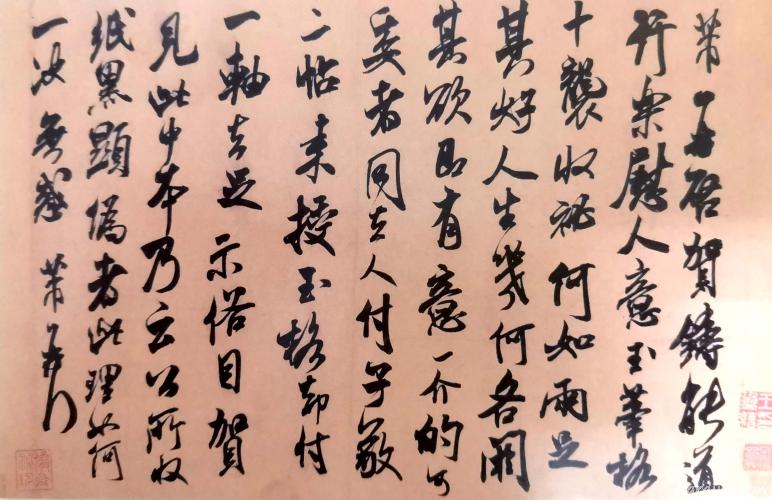 芾再啓賀鑄能道
行樂慰人意玉筆格
十襲收祕何如兩足
其好人生幾何各閼
其欲即有意一介的可
委者同去人付子敬
二帖來授玉格却付
一軸去足示俗目賀
見此中本乃云公所收
紙黑顯僞者此理如何
一決無惑芾頓首